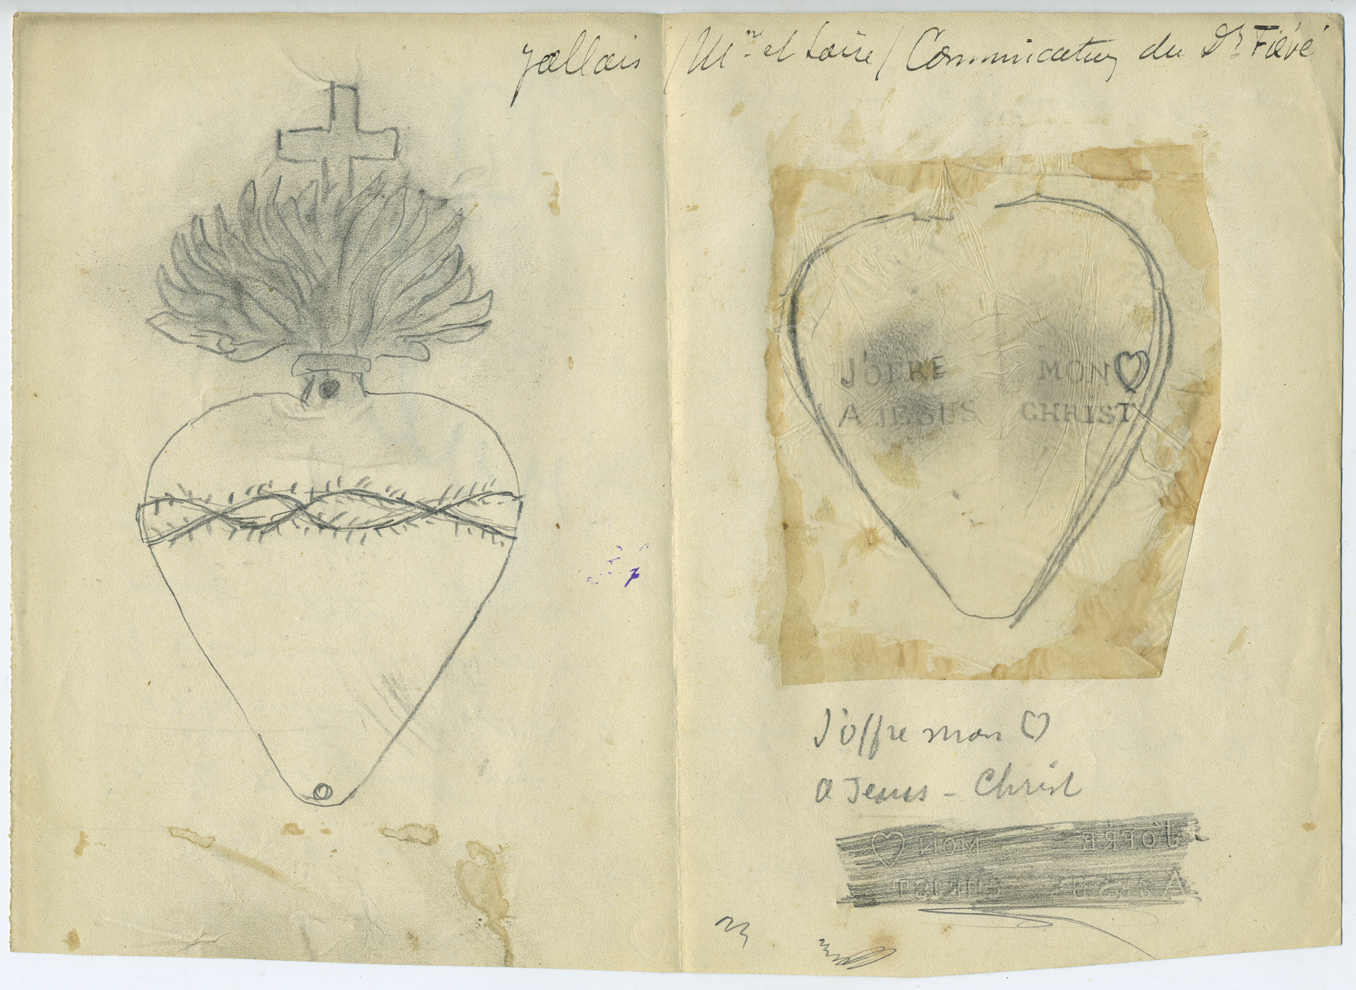 Jallais / Mne et Loire / Communication du Dr Fiévé
J'OFRE MON ♡
A JESUS CHRIST
J'offre mon ♡
a Jesus - Christ
J'OFRE MON ♡
A JESUS CHRIST